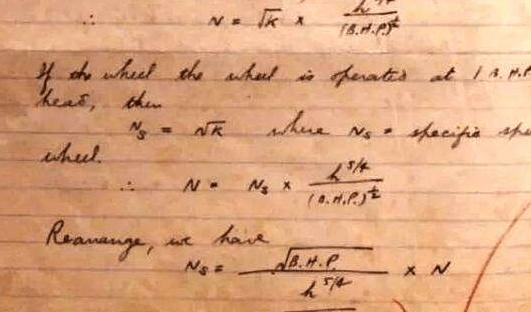 ∴ N = √K × h^5/4 / (B.H.P.)^½
If the wheel the wheel is operated at 1 B.H.P.
head, then
N_s = √K where N_s = specific spe
wheel.
∴ N = N_s × h^5/4 / (B.H.P.)^½
Rearrange, we have
N_s = √B.H.P. / h^5/4 × N